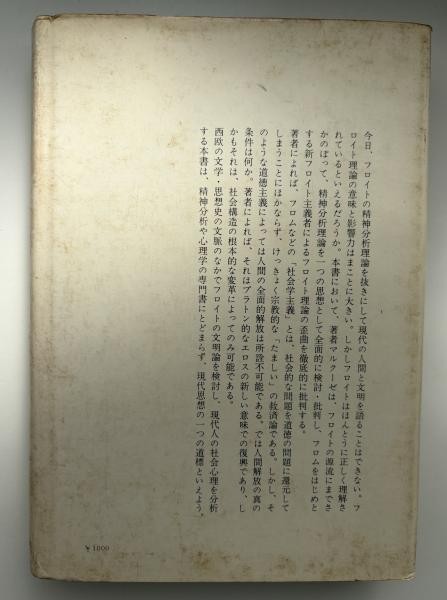 今日、フロイトの精神分析理論を抜きにして現代の人間と文明を語ることはできない。フ
ロイト理論の意味と影響力はまことに大きい。しかしフロイトはほんとうに正しく理解さ
れているといえるだろうか。本書において、著者マルクーゼは、フロイトの源流にまでさ
かのぼって、精神分析理論を一つの思想として全面的に検討・批判し、フロムをはじめと
する新フロイト主義者によるフロイト理論の歪曲を徹底的に批判する。
著者によれば、フロムなどの「社会学主義」とは、社会的な問題を道徳の問題に還元して
しまうことにほかならず、けっきょく宗教的な「たましい」の救済論である。しかし、そ
のような道徳主義によっては人間の全面的解放は所詮不可能である。では人間解放の真の
条件は何か。著者によれば、それはプラトン的なエロスの新しい意味での復興であり、し
かもそれは、社会構造の根本的な変革によってのみ可能である。
西欧の文学・思想史の文脈のなかでフロイトの文明論を検討し、現代人の社会心理を分析
する本書は、精神分析や心理学の専門書にとどまらず、現代思想の一つの道標といえよう。
￥1000